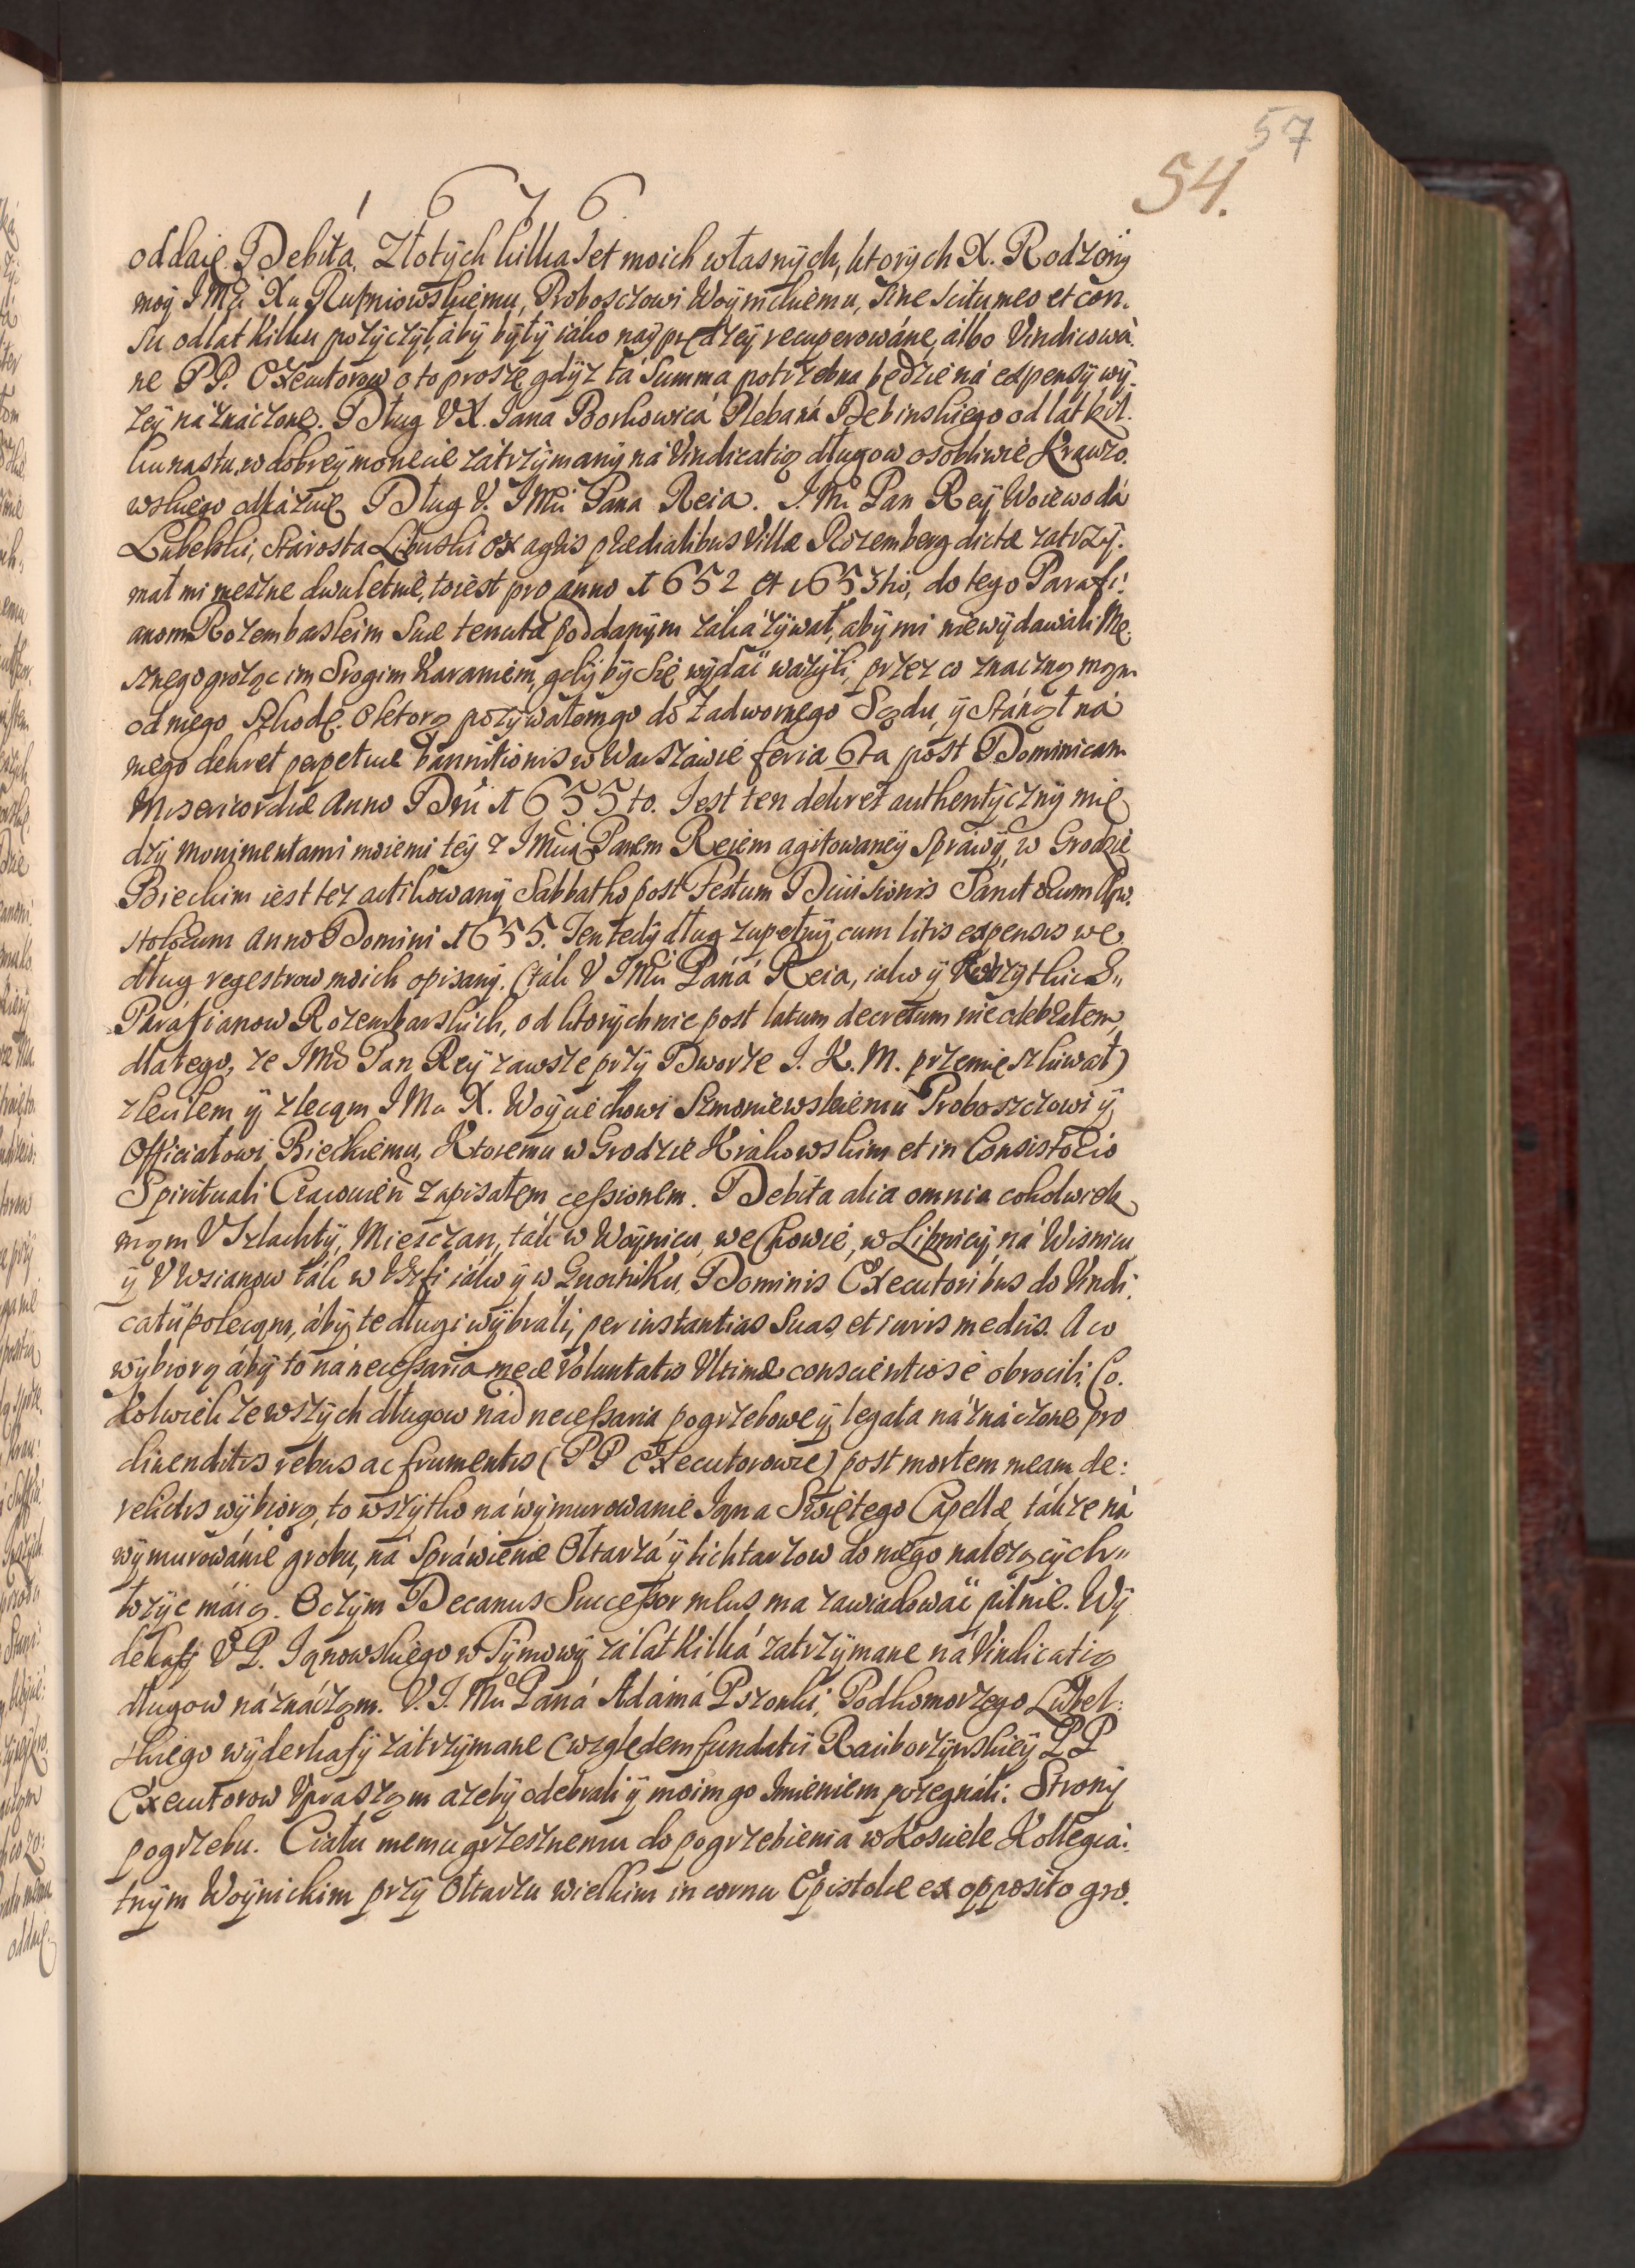 57
54.
1 6 7 6
oddaię. Debita. Złotych kilkaset moich własnych, ktorych X. Rodzony
moy IMći Xu Rupniowskiemu, Proboszczowi Woynickiemu, sine scitu meo et con-
su od lat kilku pożyczył, aby były iáko nayprędzey recuperowáne, álbo Vindicowá-
ne PP. Exekutorow o to proszę, gdyż tá Summa potrzebna będzie ná expensy wy-
zey náznáczone. Dług VX. Iana Borkowicá Plebaná Dębinskiego od lát kil-
kunastu, w dobrey monecie zátrzymány ná Vindicatią długow osobliwie Krawzo-
wskiego odkázuię. Dług V. IMći Pana Reia. I. M. Pan Rey Woiewodá
Lubelski, Stárosta Libuski ex agris prædialibus Villæ Rozemberg dictæ zatrzy-
mał mi meszne dwuletnie, toiest pro anno 1652 et 1653tio, do tego Parafi-
anom Rozembarskim Suæ tenutæ poddanym zákázywał, aby mi niewydawali Me-
sznego grożąc im Srogim Karaniem, gdyby się wydać ważyli, przez co znaczną mam
od niego Szkodę. O ktorą pozywałem go do Zadwornego Sądu, y Stánął ná
niego dekret perpetuæ bannitionis w Warszáwie feria 6ta post Dominicam
Misericordiæ Anno Dni 1655to. Iest ten dekret authentyczny mię-
dzy monimentami moiemi tey z IMcią Panem Reiem agitowaney Spráwy, w Grodzie
Bieckim iest tez actikowany Sabbatho post Festum Diuisionis Sanctorum Apo-
stolorum Anno Domini 1655. Ten tedy dług zupełny cum litis expensis we-
dług regestrow moich opisany. (ták V IMći Páná Reia, iako y Wszytkich
Paráfianow Rozembarskich, od ktorych nic post latum decretum nie odebrałem,
dlatego, ze IMć Pan Rey zawsze przy Dworze I. K. M. przemięszkiwał)
zleciłem y zlecąm IMu X. Woyciechowi Szmoniewskiemu Proboszczowi y
Officiałowi Bieckiemu, Ktoremu w Grodzie Krákowskim et in Consistorio
Spirituali Cracouień zapisałem cessionem. Debita alia omnia cokolwiek
mąm V Szlachty, Mieszczan, ták w Woyniczu, we Lwowie, w Lipnicy, ná Wisniczu
y V Wsianow ták w Vszfi iáko y w Gnoyniku, Dominis Executoribus do Vindi-
catij polecąm, áby te długi wybráli, per instantias Suas, et iuris medijs. A co
wybiorą áby to ná necessaria meæ Voluntatis Vltimæ conscientiose obrocili. Co-
kolwiek ze wszych długow nad necessaria pogrzebowe y legata náznáczone, pro
diuenditis rebus ac frumentis (PP Executorowie) post mortem meam de-
relictis wybiorą, to wszytko ná wymurowanie Iąna Swiętego Capellæ, tákze ná
wymurowánie grobu, ná Spráwienie Ołtarzá y lichtarzow do niego nalezących
łożyc máią. O czym Decanus Successor mlus ma zawiadować pilnie. Wy-
dekaff V P. Iąnowskiego w Tymowy zá lat kilká zatrzymane ná Vindicatią
długow náznácząm. V. I. Mu Páná Adámá Pszonki, Podkomorzego Lubel-
skiego wyderkafy zátrzymane (względem fundatij Raciborzynskiey PP
Executorow Vprasząm azeby odebrali y moim go Imieniem pozegnáli. Strony
pogrzebu. Ciału memu grzesznemu do pogrzebienia w Kosciele Kollegiá-
tnym Woynickim przy Ołtarzu wielkim in cornu Epistolæ ex opposito gro-